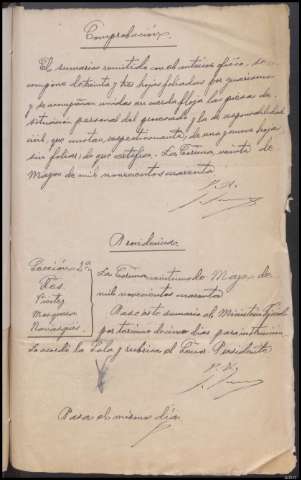 Comprobación.
El sumario remitido con el anterior oficio, se
compone de treinta y tres hojas foliadas por guarismos
y se acompañan unidas en cuerda floja las piezas de
situación personal del procesado y la de responsabilidad
civil, que constan respectivamente, de una y nueve hojas
sin foliar; lo que certifico. La Coruña veinte de
Mayo de mil novecientos cuarenta
Providencia
Sección 2ª
Res.
Pintos
Marquina
Navarpio
La Coruña veintiuno de Mayo de
mil novecientos cuarenta
Pase este sumario al Ministerio Fiscal
por término de cinco días para instrucción.
Lo acordó la Sala y rubrica el Señor Presidente
Pasa el mismo día